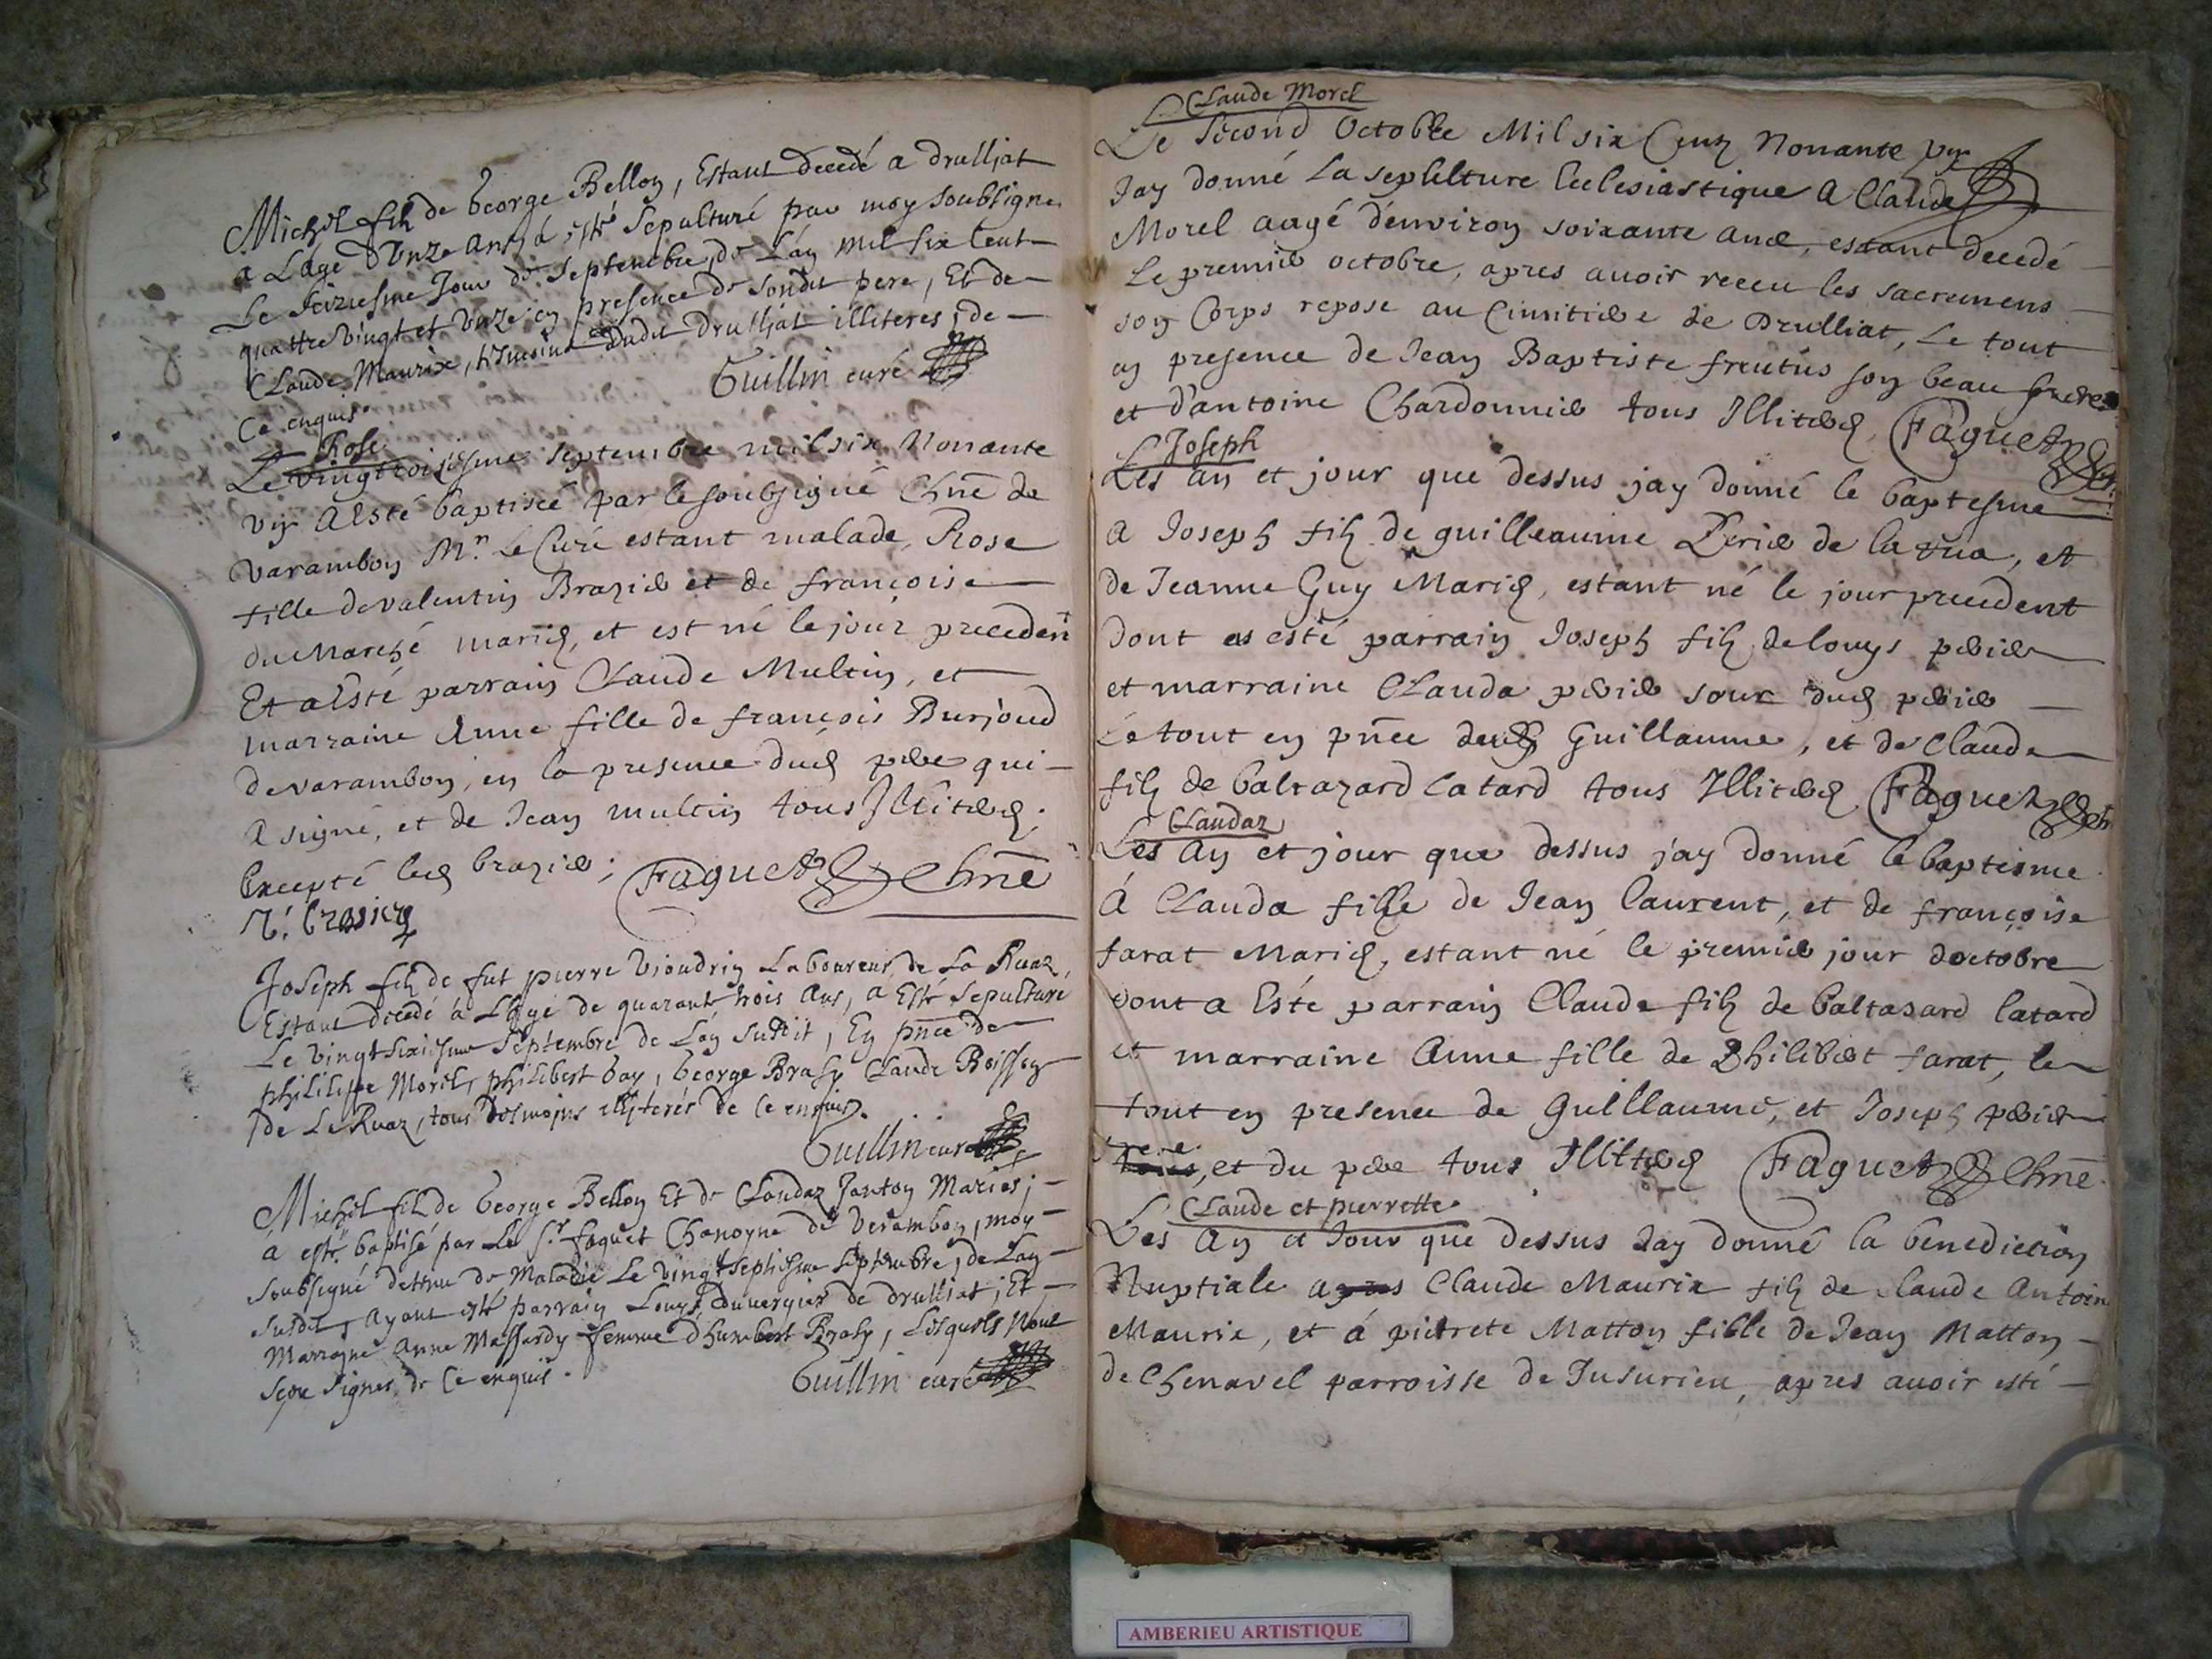 Michel fils de George Bellon, Estant decedé a drulliat
a Lâgé D'Unze Ans, a esté Sepulturé par moy soubsigné
Le seiziesme Jour de Septembre, de L'an mil six Cent
quattre vingt et Unze en presence de sondit pere, Et de
Claude Maurix, tesmoins dudit drulliat illiteres, de
Ce enquis. Guillin curé
Rose
Le vingtroisiesme septembre mil six Nonante
un A Esté baptisée par le soubsigné Chne de
Varambon Mr. Le Curé estant malade, Rose
fille de valentin Brazier et de françoise
du Marché mariés, et est né le jour precedent
Et a Esté parrain Claude Multin, et
marraine Anne fille de françois Burjoud
de varambon, en la presence dud pere qui
a signé, et de Jean multin tous Illiteres
Excepté led brazier; Faguet Chne
V. brasier
Joseph fils de fut pierre Vioudrin Laboureur de La Ruaz,
Estant decedé à L'âge de quarante trois Ans, a Esté Sepulturé
Le vingt sixiesme Septembre de L'an susdit, En pnce de
phililippe Morel, philibert Gay, George Brasy Claude Boisson
de La Ruaz, tous tesmoins illiterés de Ce enquis.
Guillin curé
Michel fils de George Bellon Et de Claudaz Janton Mariés;
à esté baptisé par Le Sr. faguet Chanoyne de Verambon, moy
soubsigné dettenu de Maladie Le vingt septiesme septembre, de L'an
susdit, Ayant esté parrain Louys duvergier de drulliat, Et
Marrayne Anne Massardy femme d'humbert Brasy, Lesquels n'ont
sçeu signer de Ce enquis. Guillin curé
Claude Morel
Le Second Octobre Mil six Cens Nonante un
Jay donné La sepulture Ecclesiastique A Claude
Morel aagé d'environ soixante ans, estant decedé
Le premier octobre, apres avoir receu les sacremens
son Corps repose au Cimitiere de Drulliat, Le tout
en presence de Jean Baptiste frutus son beau frere
et d'antoine Chardonnier tous Illiteres Faguet Chne
Joseph
Les an et jour que dessus jay donné le baptesme
a Joseph fils de guilleaume Perier de la rua, et
de Jeanne Guy Mariés, estant né le jour precedent
dont as esté parrain Joseph fils de louys perier
et marraine Clauda perier sour dud perier
Le tout en pnce dud Guillaume, et de Claude
fils de baltazard Catard tous Illiteres Faguet Chne
Claudaz
Les An et jour que dessus jay donné le baptisme
A Clauda fille de Jean laurent, et de françoise
farat Mariés, estant né le premier jour doctobre
dont a Esté parrain Claude fils de baltasard Catard
et marraine Anne fille de Philibert farat, le
tout en presence de Guillaume, et Joseph perier
frere, et du pere tous Illiteres Faguet Chne
Claude et pierrette
Les An et Jour que dessus Jay donné la benediction
Nuptiale Claude Maurix fils de Claude Antoine
Maurix, et á pierrete Matton fille de Jean Matton
de Chenavel parroisse de Jusurieu, apres avoir esté
AMBERIEU ARTISTIQUE